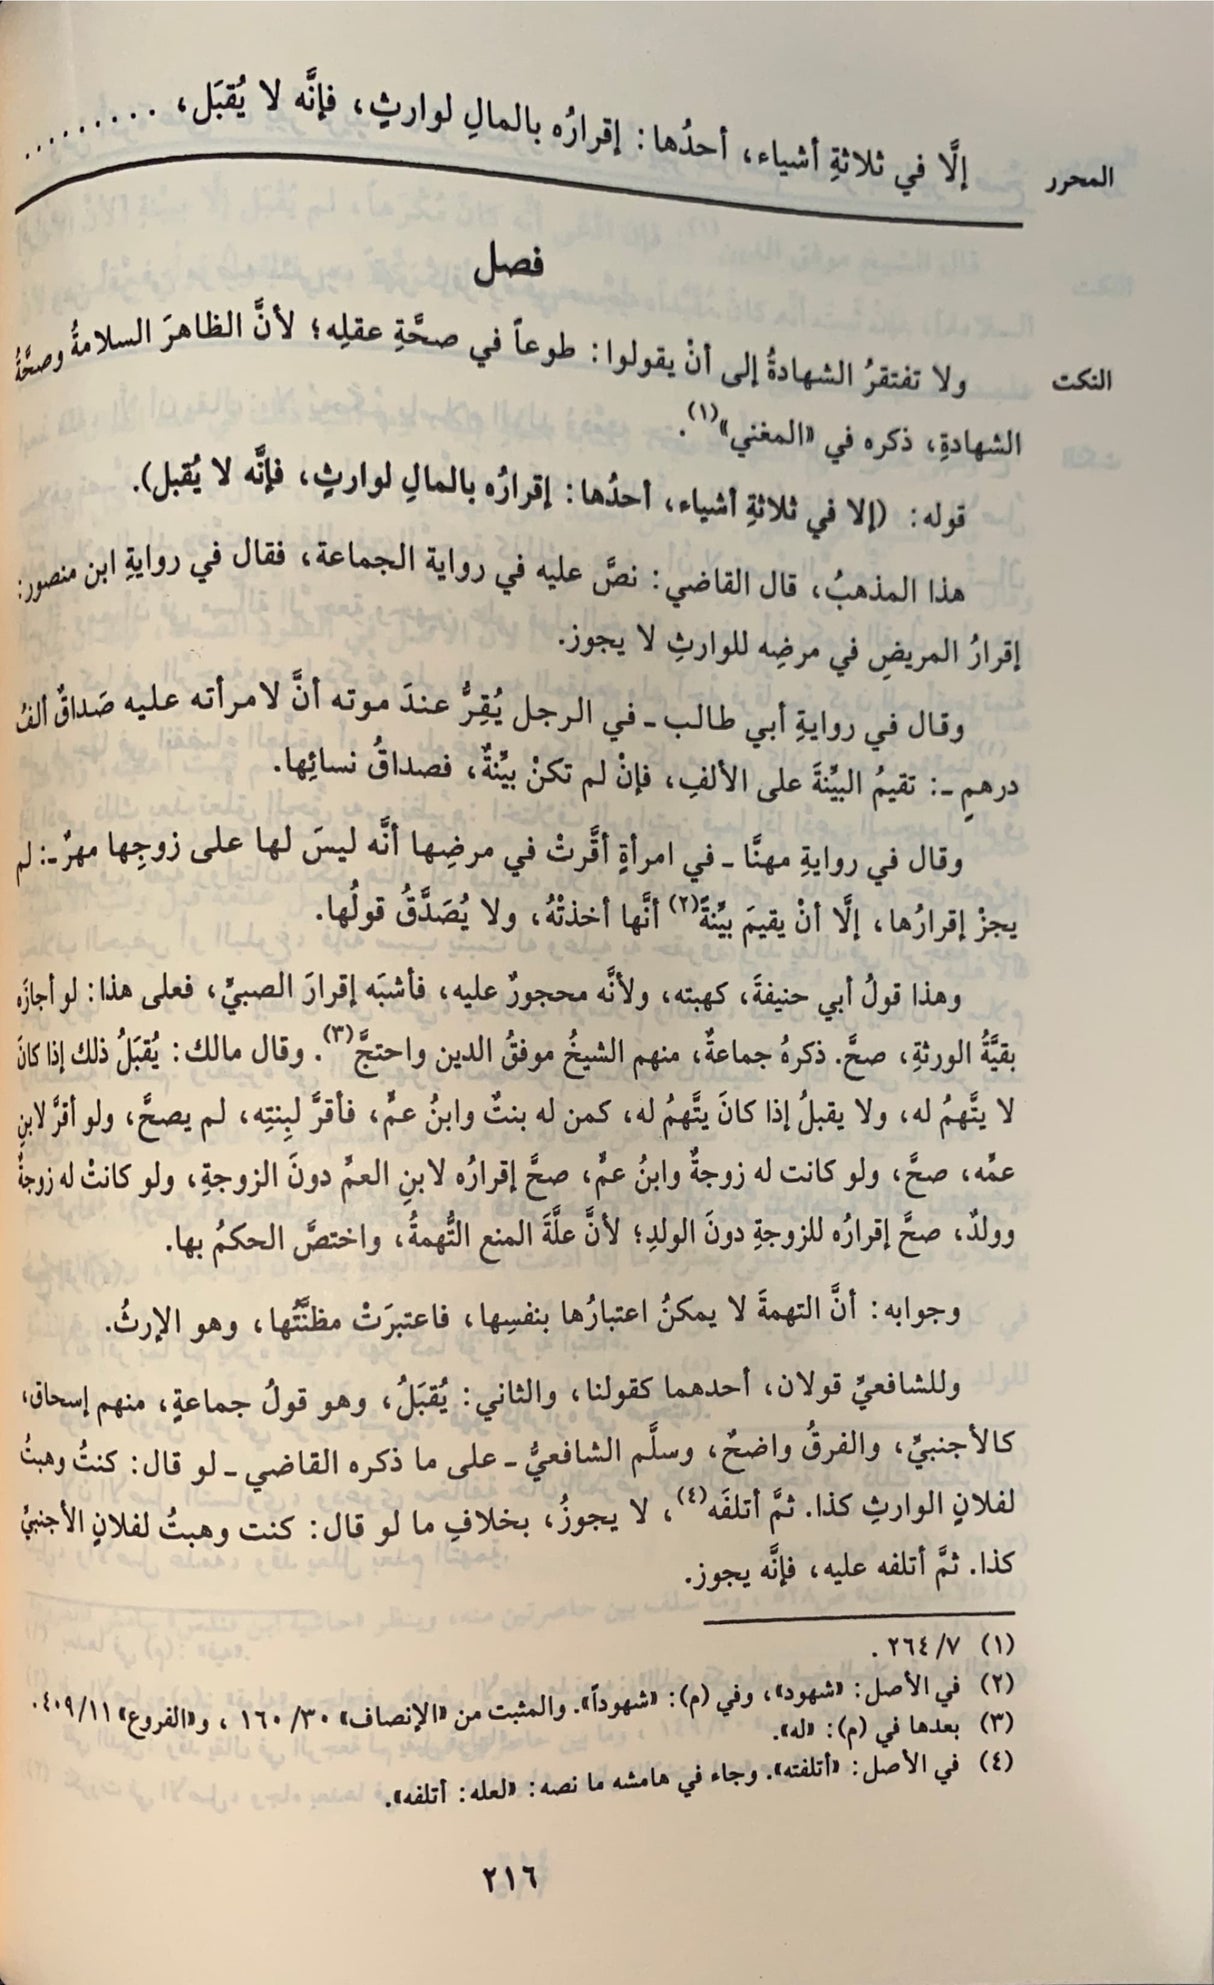 المحرر
إلَّا في ثلاثةِ أشياء، أحدُها: إقرارُه بالمالِ لوارثٍ، فإنَّه لا يُقبَل، .........
فصل
النكت
ولا تفتقرُ الشهادةُ إلى أنْ يقولوا: طوعاً في صحَّةِ عقلِه؛ لأنَّ الظاهرَ السلامةُ وصحَّةُ
الشهادةِ، ذكره في «المغني»(١).
قوله: (إلا في ثلاثةِ أشياء، أحدُها: إقرارُه بالمالِ لوارثٍ، فإنَّه لا يُقبل).
هذا المذهبُ، قال القاضي: نصَّ عليه في رواية الجماعة، فقال في روايةِ ابن منصور:
إقرارُ المريضِ في مرضِه للوارثِ لا يجوز.
وقال في روايةِ أبي طالب ـ في الرجل يُقِرُّ عندَ موته أنَّ لامرأته عليه صَداقٌ ألفُ
درهمٍ ـ: تقيمُ البيِّنةَ على الألفِ، فإنْ لم تكنْ بيِّنةٌ، فصداقُ نسائِها.
وقال في روايةِ مهنَّا ـ في امرأةٍ أقَّرتْ في مرضِها أنَّه ليسَ لها على زوجِها مهرٌ ـ: لم
يجزْ إقرارُها، إلَّا أنْ يقيمَ بيِّنةً(٢) أنَّها أخذتْهُ، ولا يُصَدَّقُ قولُها.
وهذا قولُ أبي حنيفةَ، كهبته، ولأنَّه محجورٌ عليه، فأشبَه إقرارَ الصبيِّ، فعلى هذا: لو أجازَه
بقيَّةُ الورثةِ، صحَّ. ذكرهُ جماعةٌ، منهم الشيخُ موفقُ الدين واحتجَّ(٣). وقال مالك: يُقبَلُ ذلك إذا كانَ
لا يتَّهمُ له، ولا يقبلُ إذا كانَ يتَّهمُ له، كمن له بنتٌ وابنُ عمٍّ، فأقرَّ لبِنتِه، لم يصحَّ، ولو أقرَّ لابنِ
عمِّه، صحَّ، ولو كانت له زوجةٌ وابنُ عمٍّ، صحَّ إقرارُه لابنِ العمِّ دونَ الزوجةِ، ولو كانتْ له زوجةٌ
وولدٌ، صحَّ إقرارُه للزوجةِ دونَ الولدِ؛ لأنَّ علَّةَ المنع التُّهمةُ، واختصَّ الحكمُ بها.
وجوابه: أنَّ التهمةَ لا يمكنُ اعتبارُها بنفسِها، فاعتبرَتْ مظنَّتُها، وهو الإرثُ.
وللشافعيِّ قولان، أحدهما كقولنا، والثاني: يُقبَلُ، وهو قولُ جماعةٍ، منهم إسحاق،
كالأجنبيِّ، والفرقُ واضحٌ، وسلَّم الشافعيُّ ـ على ما ذكره القاضي ـ لو قال: كنتُ وهبتُ
لفلانٍ الوارثِ كذا. ثمَّ أتلفَه(٤)، لا يجوزُ، بخلافِ ما لو قال: كنت وهبتُ لفلانٍ الأجنبيِّ
كذا. ثمَّ أتلفه عليه، فإنَّه يجوز.
(١) ٢٦٤/٧ .
(٢) في الأصل: «شهود»، وفي (م): «شهوداً». والمثبت من «الإنصاف» ١٦٠/٣٠ ، و«الفروع» ٤٠٩/١١ .
(٣) بعدها في (م): «له».
(٤) في الأصل: «أتلفته». وجاء في هامشه ما نصه: «لعله: أتلفه».
٢١٦